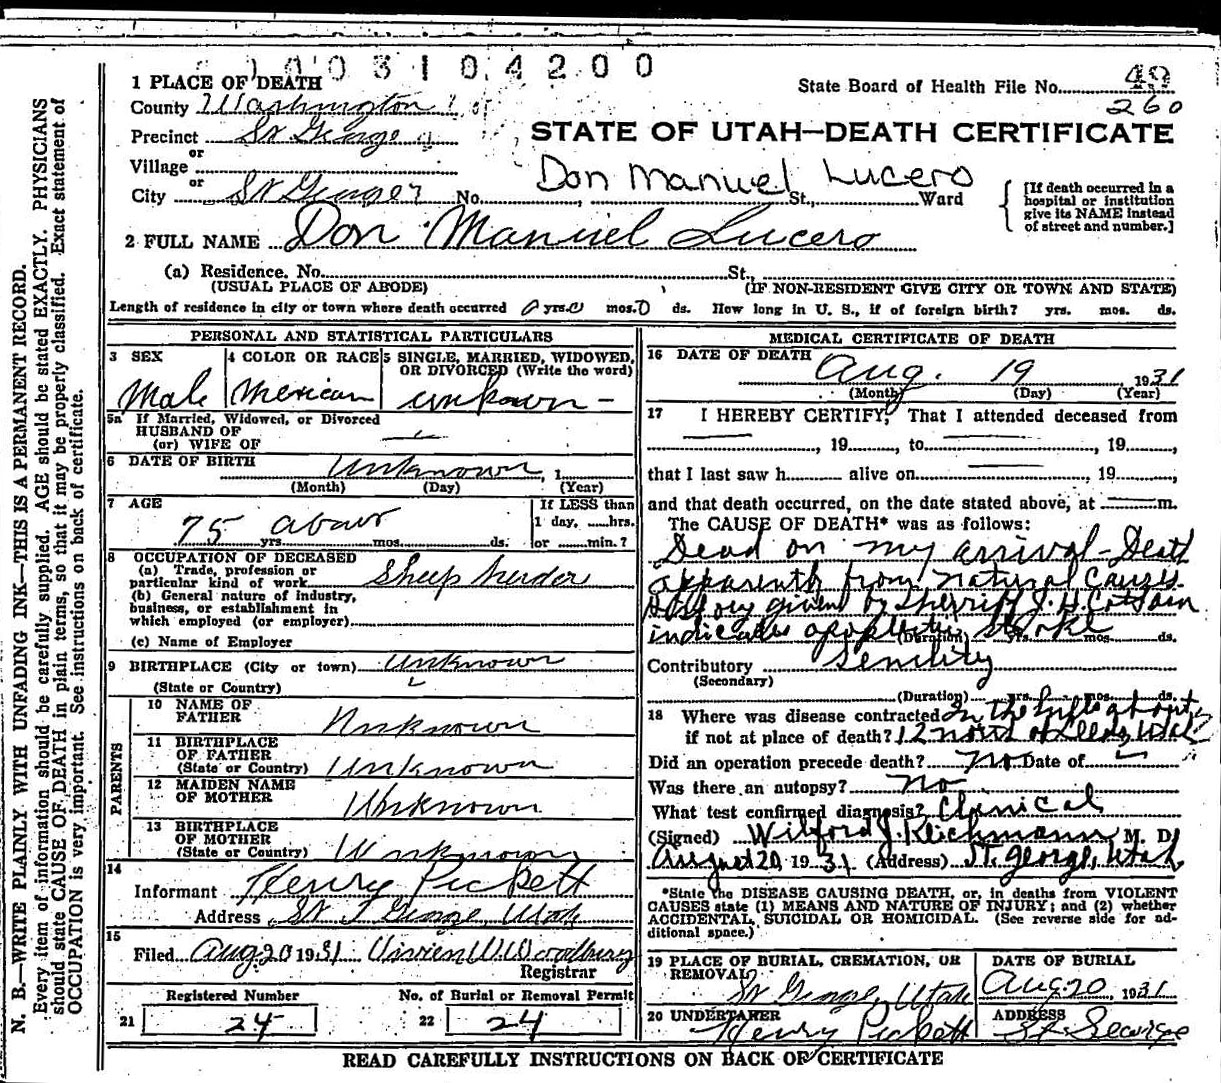 0 0 0 3 1 0 4 2 0 0
State Board of Health File No. 49
260
STATE OF UTAH—DEATH CERTIFICATE
1 PLACE OF DEATH
County Washington
Precinct St George
or
Village
or
City St George No. St., Ward
Don Manuel Lucero
[If death occurred in a hospital or institution give its NAME instead of street and number.]
2 FULL NAME Don Manuel Lucero
(a) Residence. No. St.,
(USUAL PLACE OF ABODE) (IF NON-RESIDENT GIVE CITY OR TOWN AND STATE)
Length of residence in city or town where death occurred 0 yrs. 0 mos. 0 ds. How long in U. S., if of foreign birth? yrs. mos. ds.
PERSONAL AND STATISTICAL PARTICULARS
3 SEX
Male
4 COLOR OR RACE
Mexican
5 SINGLE, MARRIED, WIDOWED, OR DIVORCED (Write the word)
unknown –
5a If Married, Widowed, or Divorced
HUSBAND OF
(or) WIFE OF —
6 DATE OF BIRTH Unknown, 1
(Month) (Day) (Year)
7 AGE
75 about
yrs. mos. ds.
If LESS than
1 day, hrs.
or min.?
8 OCCUPATION OF DECEASED
(a) Trade, profession or
particular kind of work Sheep herder
(b) General nature of industry,
business, or establishment in
which employed (or employer)
(c) Name of Employer
9 BIRTHPLACE (City or town) Unknown
(State or Country)
PARENTS
10 NAME OF
FATHER Unknown
11 BIRTHPLACE
OF FATHER
(State or Country) Unknown
12 MAIDEN NAME
OF MOTHER Unknown
13 BIRTHPLACE
OF MOTHER
(State or Country) Unknown
14
Informant Henry Pickett
Address St George, Utah
15
Filed Aug 20 1931 Vivien W. Woodbury
Registrar
Registered Number
21 24
No. of Burial or Removal Permit
22 24
MEDICAL CERTIFICATE OF DEATH
16 DATE OF DEATH
Aug. 19 1931
(Month) (Day) (Year)
17 I HEREBY CERTIFY, That I attended deceased from
—, 19, to —, 19,
that I last saw h alive on —, 19,
and that death occurred, on the date stated above, at — m.
The CAUSE OF DEATH* was as follows:
Dead on my arrival – Death
apparently from natural causes.
History given by Sherriff J. H. Cottam
indicates apoplectic stroke
(Duration) yrs. mos. ds.
Contributory Senility
(Secondary)
(Duration) yrs. mos. ds.
18 Where was disease contracted In the hills about
if not at place of death? 12 north of Leeds, Utah
Did an operation precede death? No Date of –
Was there an autopsy? No
What test confirmed diagnosis? Clinical
(Signed) Wilford J. Reichmann M. D.
August 20, 1931 (Address) St. George, Utah
*State the DISEASE CAUSING DEATH, or, in deaths from VIOLENT
CAUSES state (1) MEANS AND NATURE OF INJURY; and (2) whether
ACCIDENTAL, SUICIDAL OR HOMICIDAL. (See reverse side for ad-
ditional space.)
19 PLACE OF BURIAL, CREMATION, OR
REMOVAL
St George, Utah
DATE OF BURIAL
Aug 20, 1931
20 UNDERTAKER
Henry Pickett
ADDRESS
St George
READ CAREFULLY INSTRUCTIONS ON BACK OF CERTIFICATE
N. B.—WRITE PLAINLY WITH UNFADING INK—THIS IS A PERMANENT RECORD.
Every item of information should be carefully supplied. AGE should be stated EXACTLY. PHYSICIANS
should state CAUSE OF DEATH in plain terms, so that it may be properly classified. Exact statement of
OCCUPATION is very important. See instructions on back of certificate.